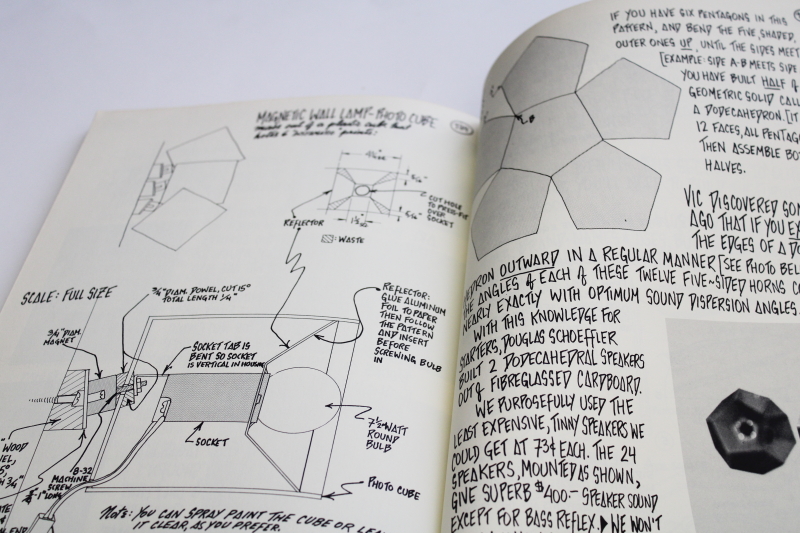 MAGNETIC WALL LAMP-PHOTO CUBE
made out of a plastic cube that
SCALE: FULL SIZE
3/4" DIAM.
MAGNET
3/4" DIAM. DOWEL, CUT 15°
TOTAL LENGTH 1¼"
SOCKET TAB IS
BENT SO SOCKET
IS VERTICAL IN HOUSING
REFLECTOR
CUT HOLE
OVER
SOCKET
: WASTE
REFLECTOR:
GLUE ALUMINUM
FOIL TO PAPER
THEN FOLLOW
THE PATTERN
AND INSERT
BEFORE
SCREWING BULB
IN
7½-WATT
ROUND
BULB
SOCKET
WOOD
8-32
MACHINE
SCREW
1" LONG
PHOTO CUBE
Note: YOU CAN SPRAY PAINT THE CUBE OR
IT CLEAR, AS YOU PREFER.
IF YOU HAVE SIX PENTAGONS IN THIS
PATTERN, AND BEND THE FIVE, SHADED,
OUTER ONES UP, UNTIL THE SIDES MEET
[EXAMPLE: SIDE A-B MEETS SIDE
YOU HAVE BUILT HALF of
GEOMETRIC SOLID
A DODECAHEDRON. [IT
12 FACES, ALL
THEN ASSEMBLE
HALVES.
VIC DISCOVERED
AGO THAT IF YOU
THE EDGES OF A
OUTWARD IN A REGULAR MANNER [SEE PHOTO
THE ANGLES of EACH of THESE TWELVE FIVE~SIDED HORNS
NEARLY EXACTLY WITH OPTIMUM SOUND DISPERSION ANGLES.
WITH THIS KNOWLEDGE FOR
STARTERS, DOUGLAS SCHOEFFLER
BUILT 2 DODECAHEDRAL SPEAKERS
OUT of FIBREGLASSED CARDBOARD.
WE PURPOSEFULLY USED THE
LEAST EXPENSIVE, TINNY SPEAKERS WE
COULD GET AT 73¢ EACH. THE 24
SPEAKERS, MOUNTED AS SHOWN,
GIVE SUPERB $400.- SPEAKER SOUND
EXCEPT FOR BASS REFLEX. WE WON'T